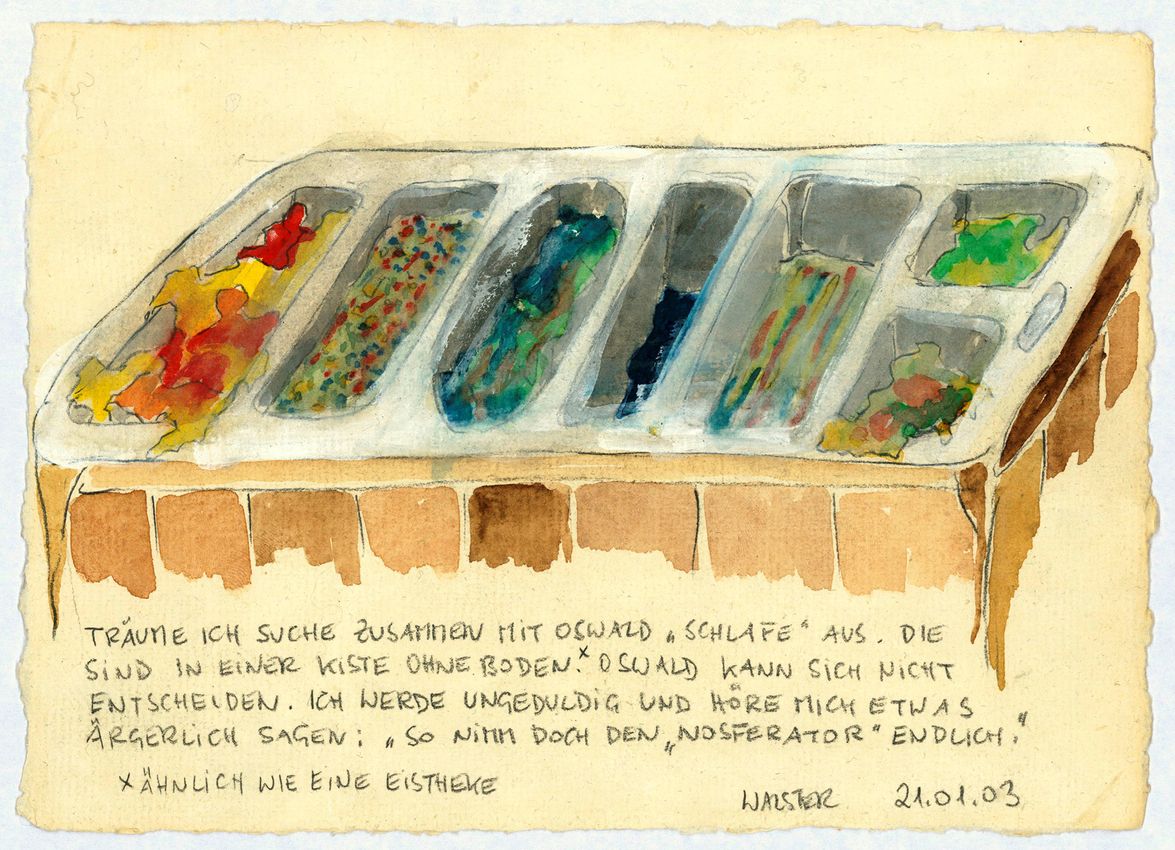 TRÄUME ICH SUCHE ZUSAMMEN MIT OSWALD „SCHLAFE“ AUS. DIE
SIND IN EINER KISTE OHNE BODEN.ˣ OSWALD KANN SICH NICHT
ENTSCHEIDEN. ICH WERDE UNGEDULDIG UND HÖRE MICH ETWAS
ÄRGERLICH SAGEN: „SO NIMM DOCH DEN „NOSFERATOR“ ENDLICH.“
x ÄHNLICH WIE EINE EISTHEKE
WALSTER 21.01.03